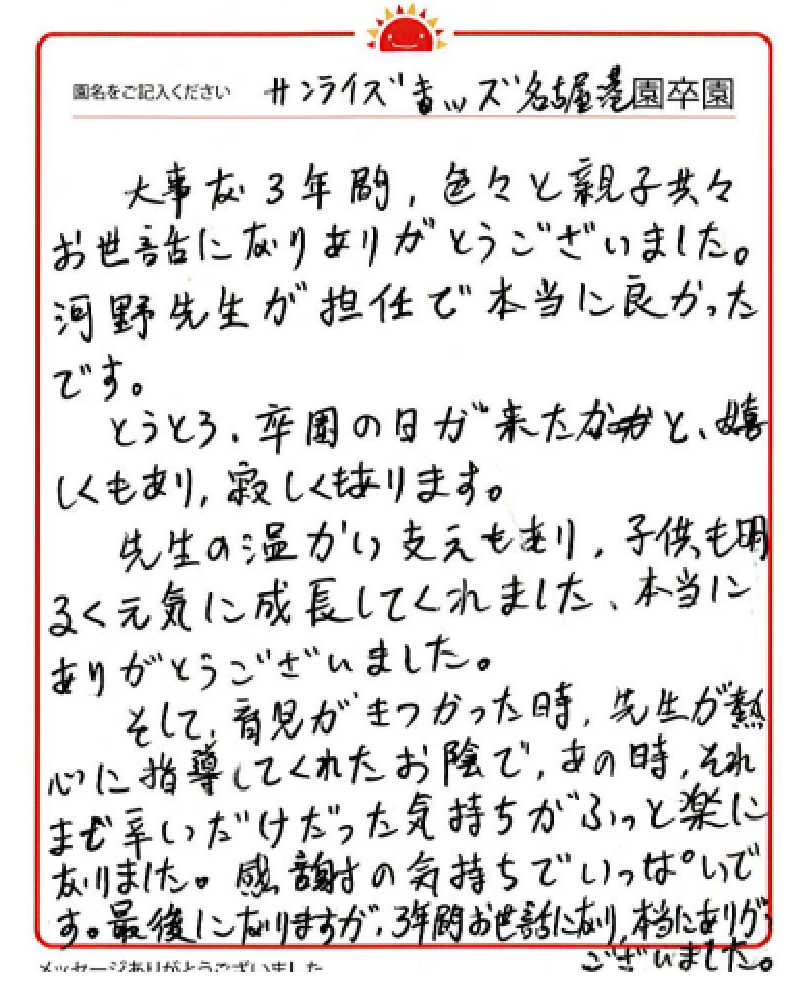 園名をご記入ください サンライズキッズ名古屋港園卒園
大事な3年間,色々と親子共々
お世話になりありがとうございました。
河野先生が担任で本当に良かった
です。
とうとう、卒園の日が来たかと、嬉
しくもあり,寂しくもあります。
先生の温かい支えもあり,子供も明
るく元気に成長してくれました、本当に
ありがとうございました。
そして,育児がきつかった時,先生が熱
心に指導してくれたお陰で,あの時,それ
まで辛いだけだった気持ちがふっと楽に
なりました。感謝の気持ちでいっぱいで
す。最後になりますが,3年間お世話になり,本当にありがとう
ございました。
メッセージありがとうございました